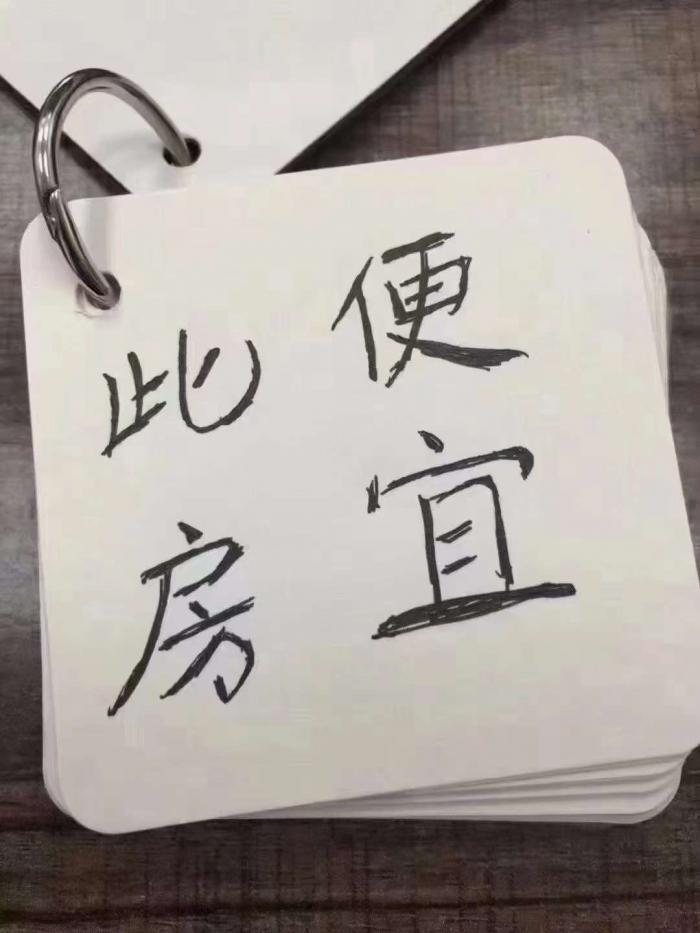 便宜
此房